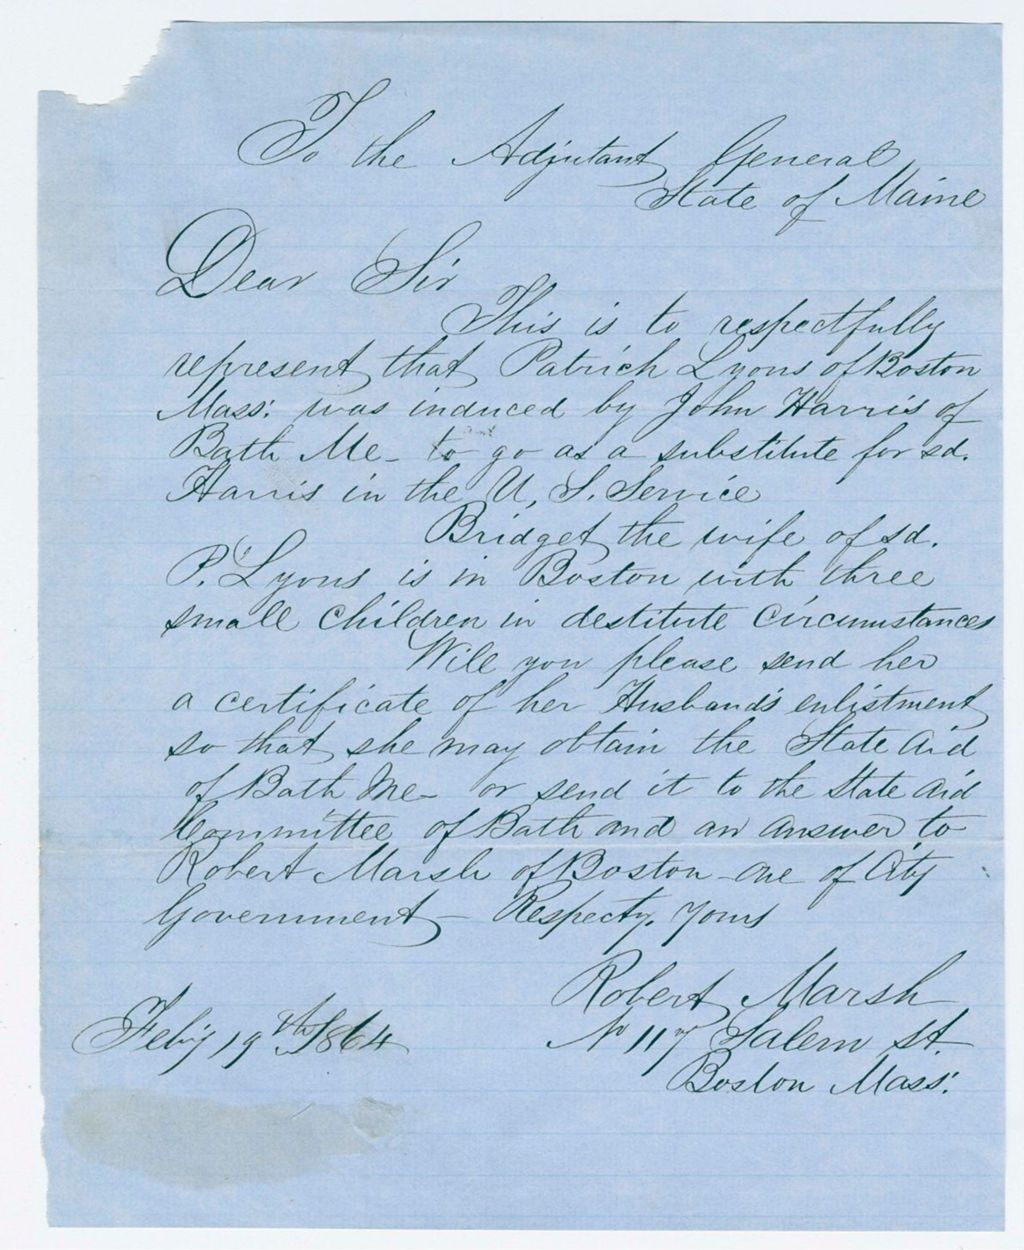 To the Adjutant General
State of Maine
Dear Sir
This is to respectfully
represent that Patrick Lyons of Boston
Mass: was induced by John Harris of
Bath Me- to go as a substitute for sd.
Harris in the U. S. Service
Bridget the wife of sd.
P. Lyons is in Boston with three
small children in destitute circumstances
Will you please send her
a certificate of her Husband's enlistment
so that she may obtain the State Aid
of Bath Me- or send it to the State Aid
Committee of Bath and an answer to
Robert Marsh of Boston one of City
Government - Respecty. Yours
Robert Marsh
No 117 Salem St.
Boston Mass:
Feb'y 19th 1864